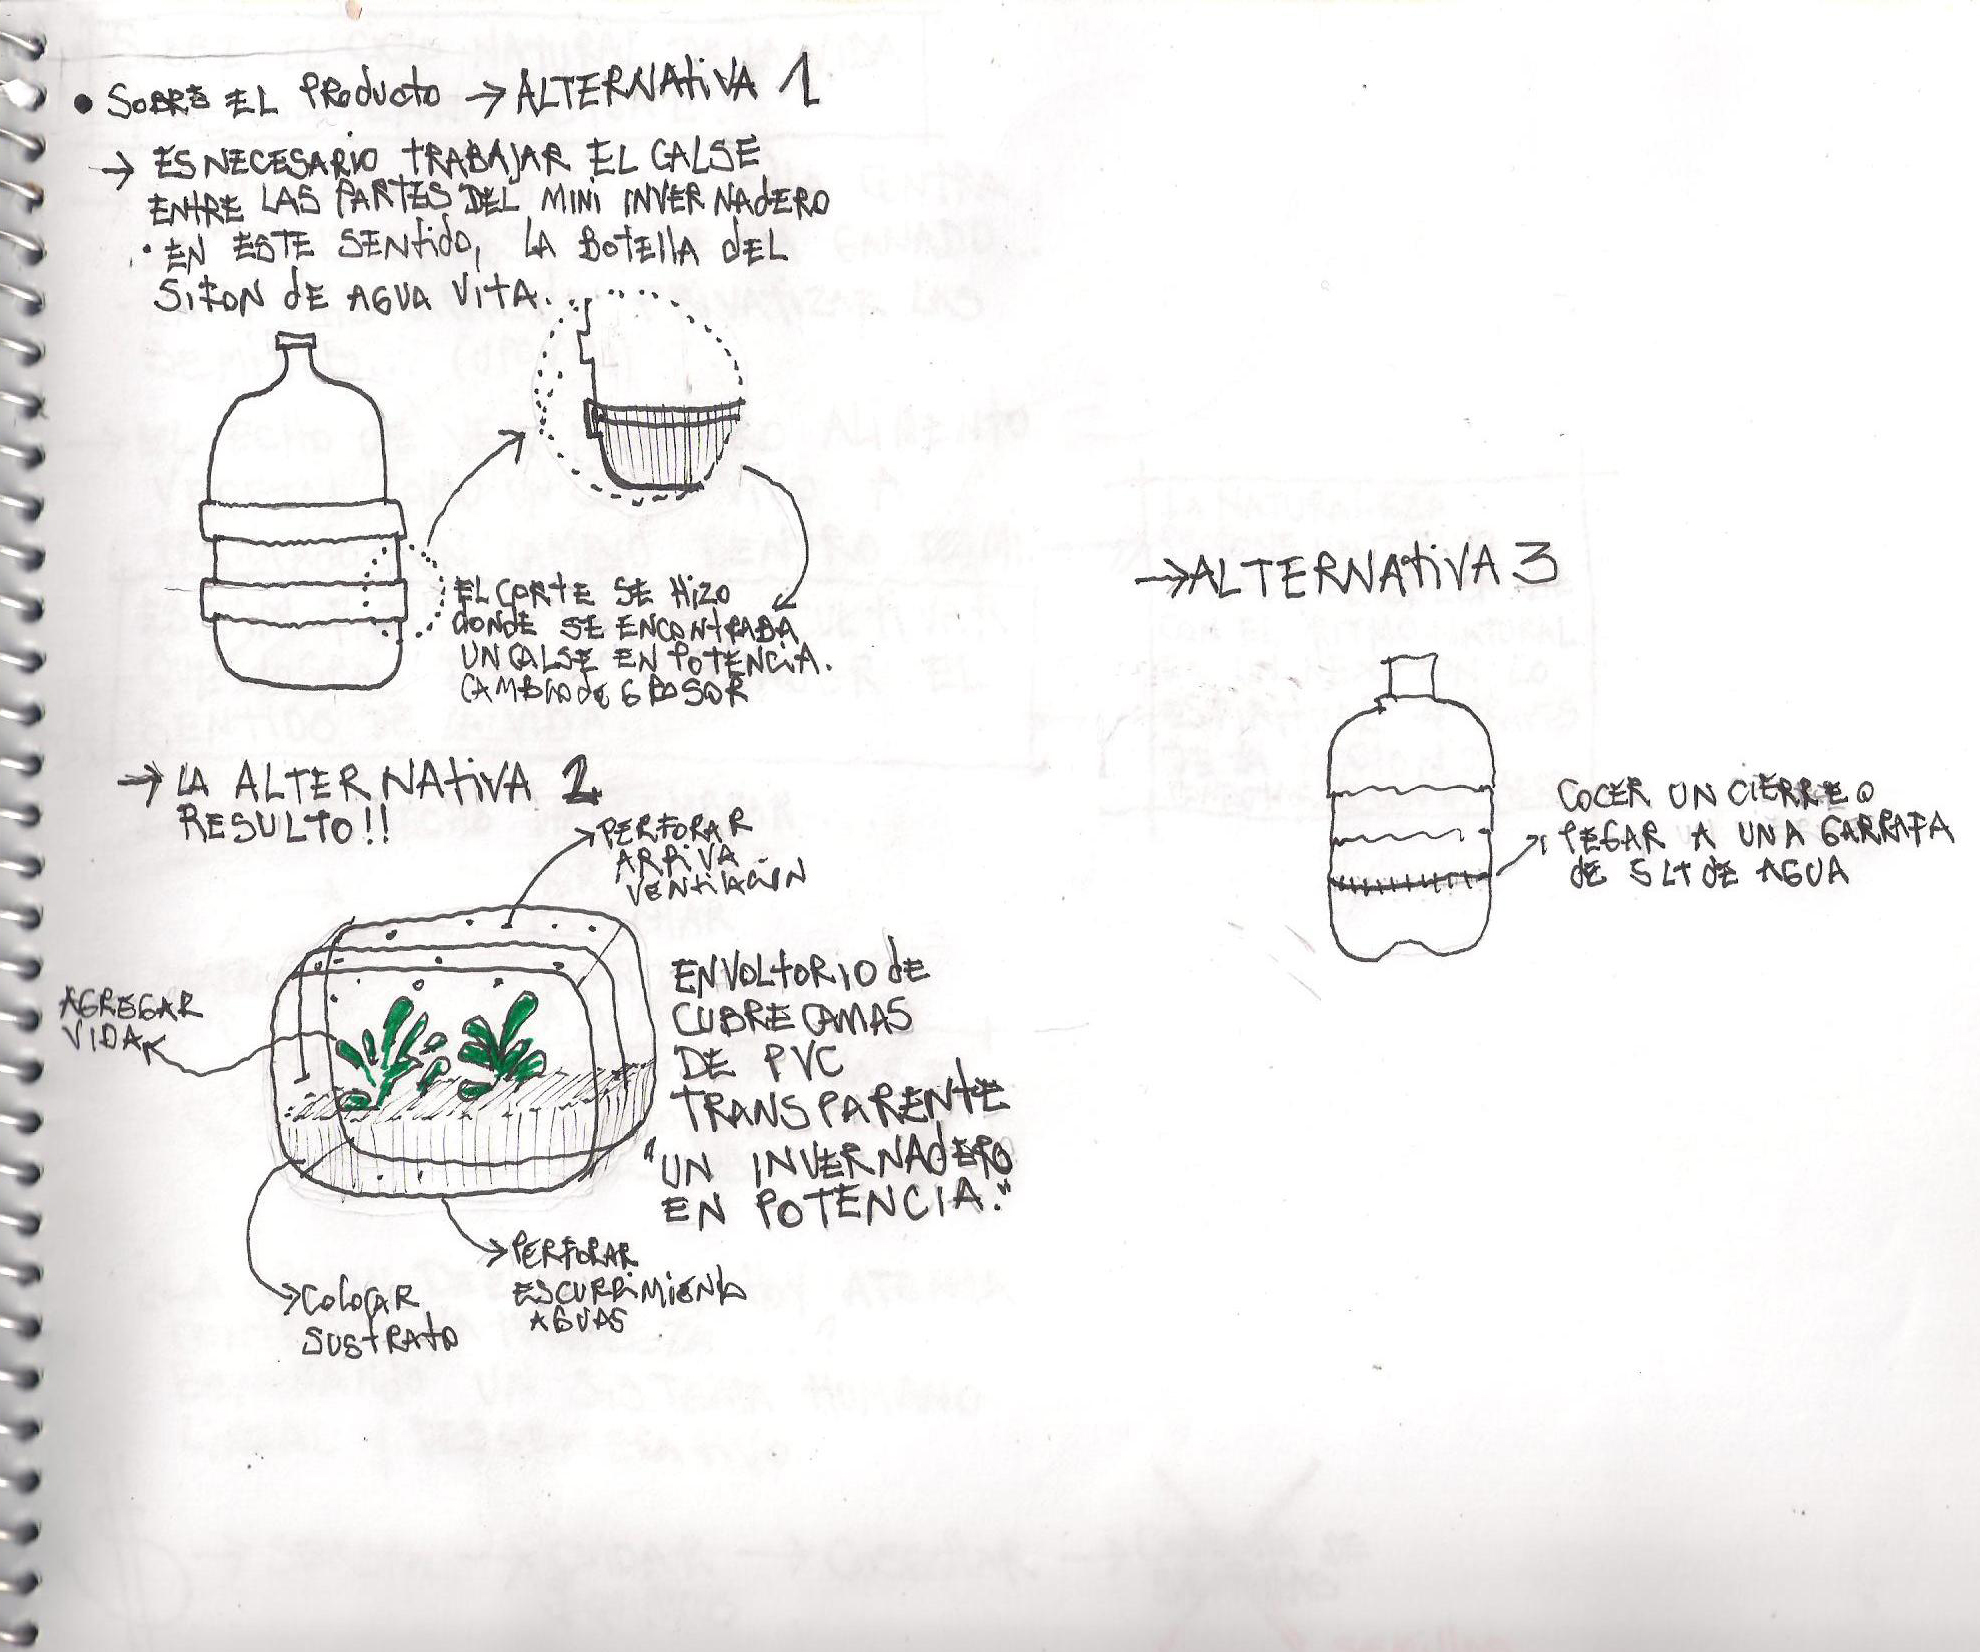 • SOBRE EL PRODUCTO → ALTERNATIVA 1
→ ES NECESARIO TRABAJAR EL CALSE
ENTRE LAS PARTES DEL MINI INVERNADERO
• EN ESTE SENTIDO, LA BOTELLA DEL
SIFON DE AGUA VITA.
EL CORTE SE HIZO
DONDE SE ENCONTRABA
UN CALSE EN POTENCIA.
CAMBIO DE GROSOR
→ LA ALTERNATIVA 2
RESULTO!!
PERFORAR
ARRIVA
VENTILACIÓN
AGREGAR
VIDA
ENVOLTORIO DE
CUBRECAMAS
DE PVC
TRANSPARENTE
"UN INVERNADERO
EN POTENCIA."
PERFORAR
ESCURRIMIENTO
AGUAS
COLOCAR
SUSTRATO
→ ALTERNATIVA 3
COCER UN CIERRE O
PEGAR A UNA GARRAFA
DE 5 LT DE AGUA